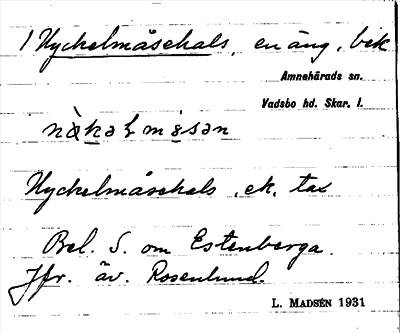 1 Nyckelmåsehals, en äng, bek
Amnehärads sn.
Vadsbo hd. Skar. l.
Nyckelmåsehals, ek, tax
Bel. S. om Estenberga.
Jfr. äv. Rosenlund.
L. MADSÉN 1931